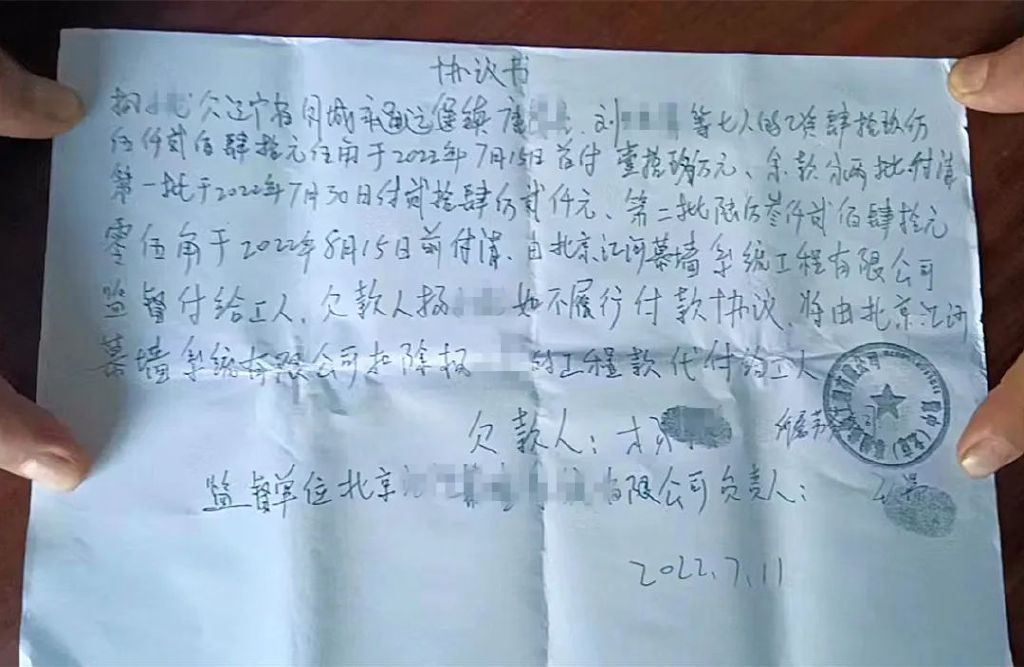 协议书
欠辽宁省 城 通远堡镇 唐 刘 等七人的工资肆拾玖万
伍仟贰佰肆拾元伍角于2022年7月15日前付壹拾玖万元、余款分两批付清
第一批于2022年7月30日付贰拾肆万贰仟元、第二批陆万叁仟贰佰肆拾元
零伍角于2022年8月15日前付清.由北京江河幕墙系统工程有限公司
监督付给工人.欠款人杨 如不履行付款协议.将由北京江河
幕墙系统有限公司扣除杨 的工程款代付给工人
欠款人:杨
监督单位北京 有限公司负责人:
2022.7.11